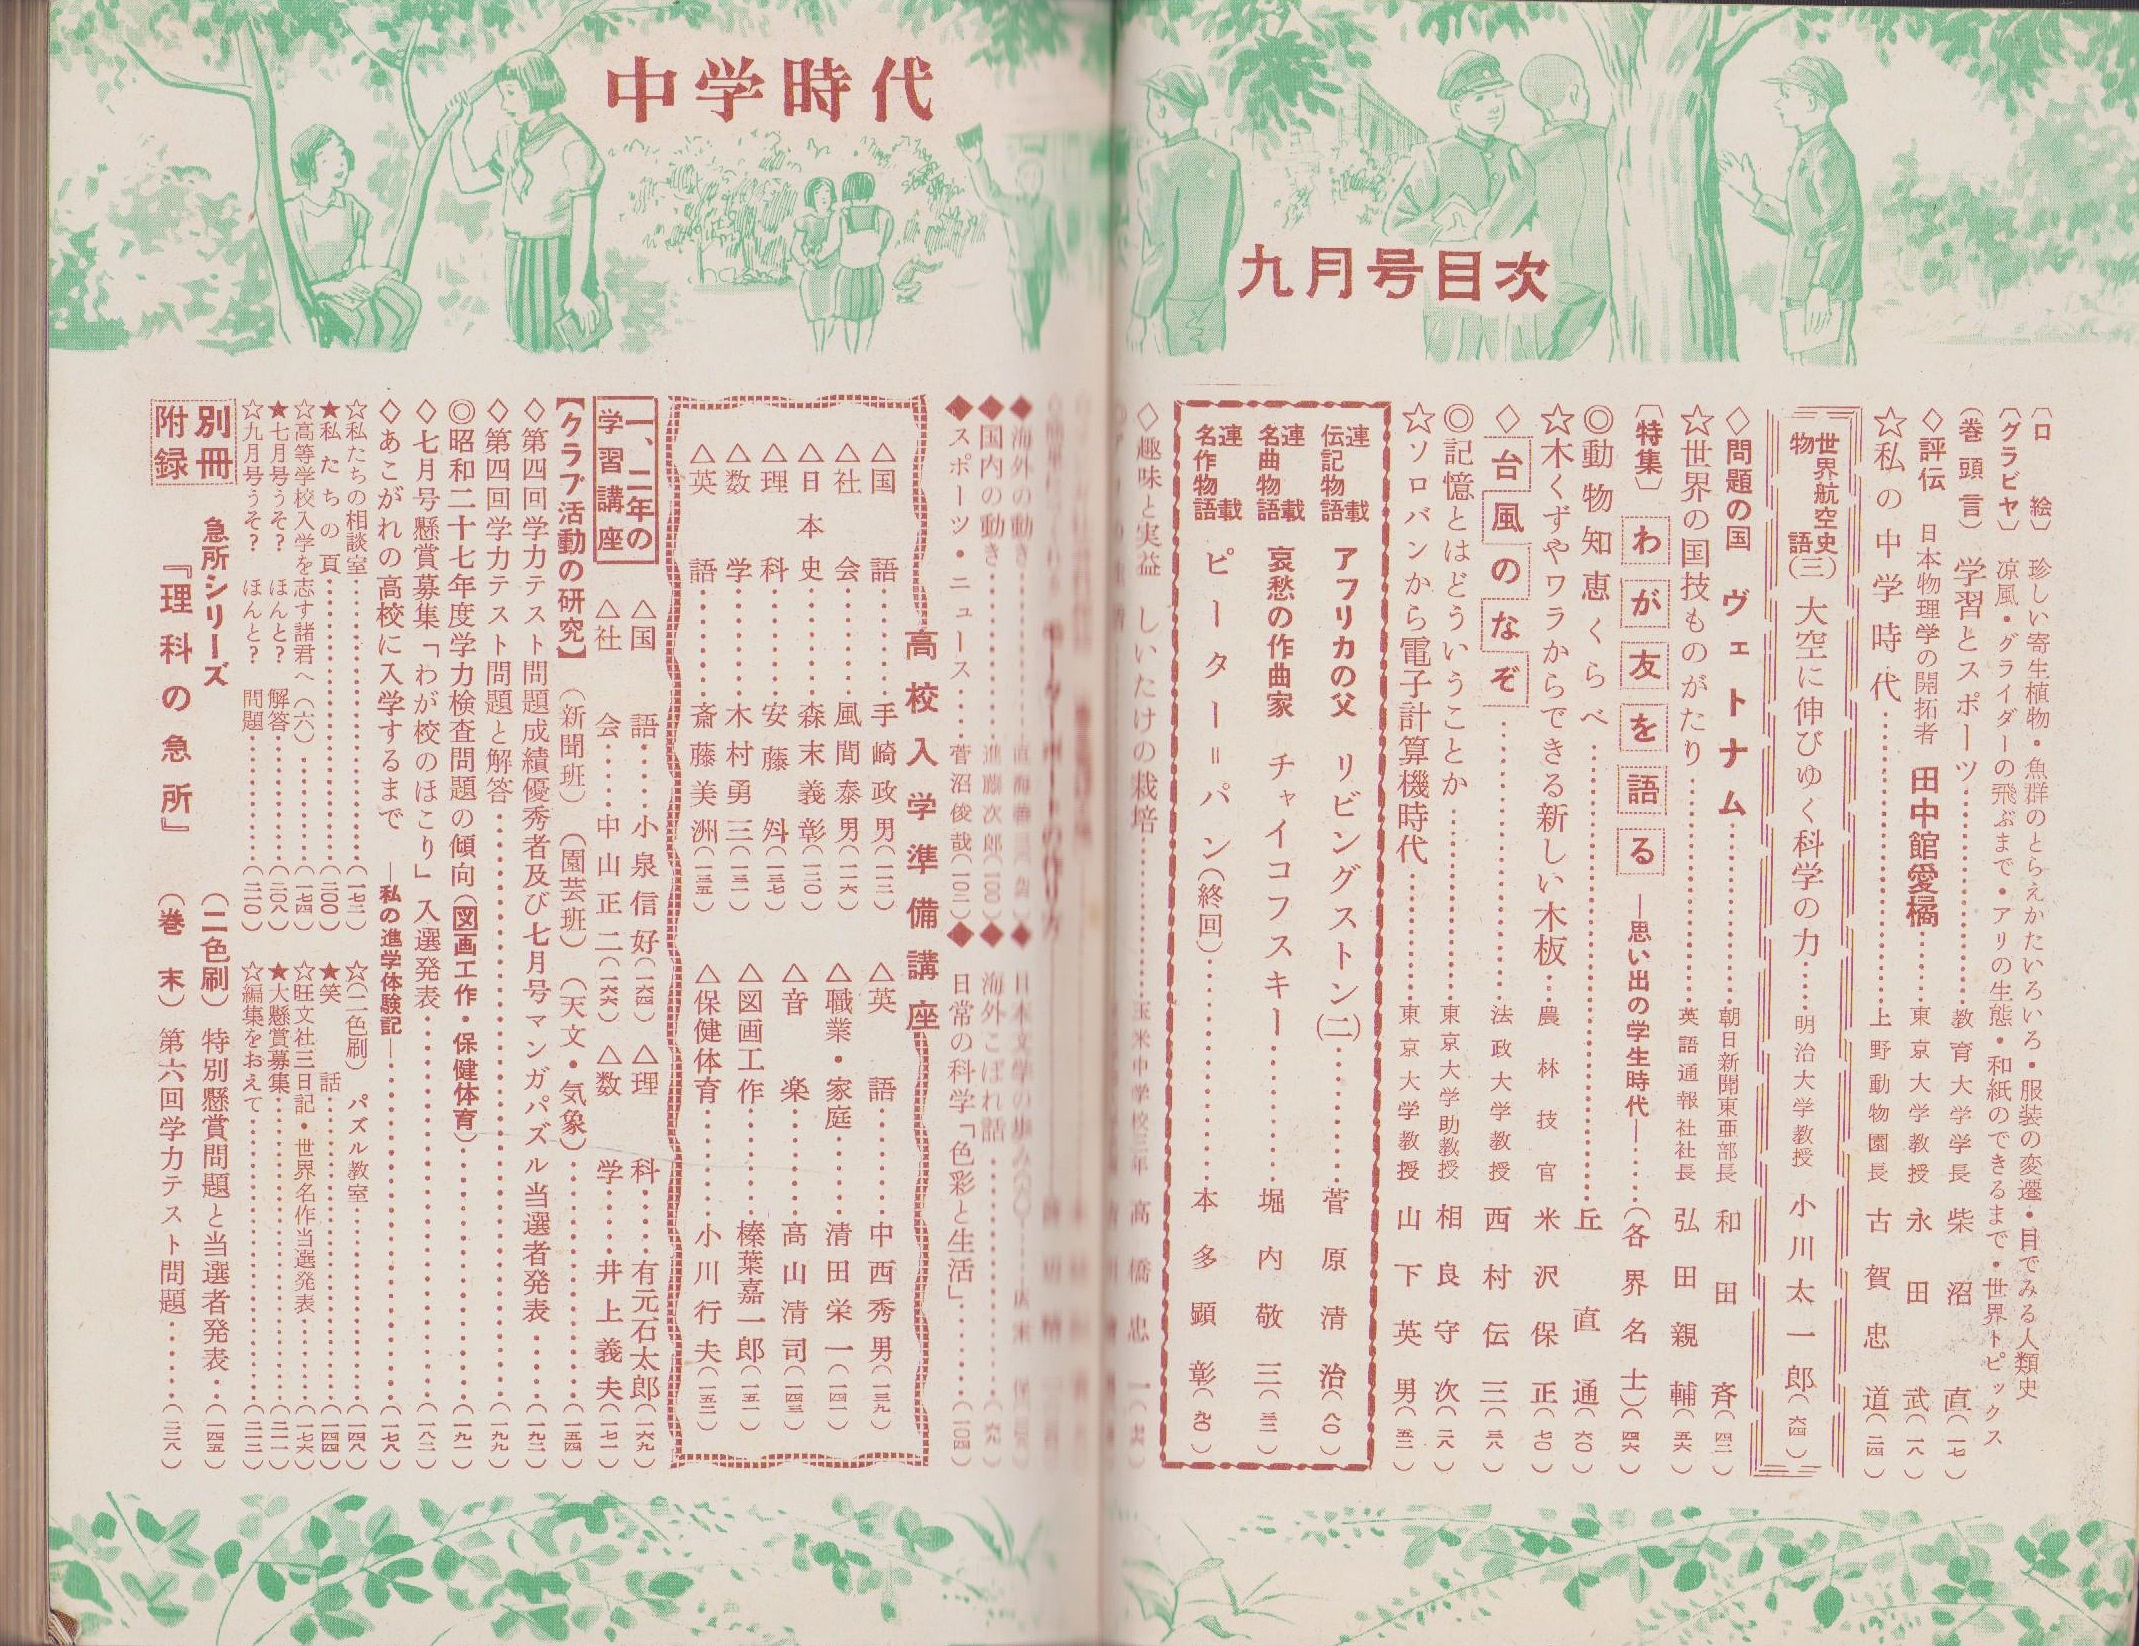 中学時代
九月号目次
〔口絵〕 珍しい寄生植物・魚群のとらえかたいろいろ・服装の変遷・目でみる人類史
〔グラビヤ〕 凉風・グライダーの飛ぶまで・アリの生態・和紙のできるまで・世界トピックス
(巻頭言) 学習とスポーツ……教育大学学長 柴沼直(一七)
◇評伝 日本物理学の開拓者 田中館愛橘……東京大学教授 永田武(一八)
☆私の中学時代……上野動物園長 古賀忠道(二四)
世界航空史物語(三) 大空に伸びゆく科学の力……明治大学教授 小川太一郎(六四)
◇問題の国 ヴェトナム……朝日新聞東亜部長 和田斉(四二)
☆世界の国技ものがたり……英語通報社社長 弘田親輔(五六)
〔特集〕 わが友を語る ―思い出の学生時代―……(各界名士)(四六)
◎動物知恵くらべ……丘直通(六〇)
☆木くずやワラからできる新しい木板……農林技官 米沢保正(七〇)
◇台風のなぞ……法政大学教授 西村伝三(三八)
◎記憶とはどういうことか……東京大学助教授 相良守次(二八)
☆ソロバンから電子計算機時代……東京大学教授 山下英男(五二)
連載伝記物語 アフリカの父 リビングストン(二)……菅原清治(八〇)
連載名曲物語 哀愁の作曲家 チャイコフスキー……堀内敬三(三二)
連載名作物語 ピーター＝パン(終回)……本多顕彰(九〇)
◇趣味と実益 しいたけの栽培……玉米中学校三年 高橋忠一
◆海外の動き……
◆国内の動き……進藤次郎(一〇〇)◆ 海外こぼれ話……
◆スポーツ・ニュース……菅沼俊哉(一〇二)◆ 日常の科学「色彩と生活」……(一〇四)
高校入学準備講座
△国語……手崎政男(一一二) △英語……中西秀男(一三九)
△社会……風間泰男(一一六) △職業・家庭……清田栄一(一四一)
△日本史……森末義彰(一二〇) △音楽……高山清司(一四三)
△理科……安藤(一二七) △図画工作……榛葉嘉一郎(一五一)
△数学……木村勇三(一三一) △保健体育……小川行夫(一五二)
△英語……斎藤美洲(一三五)
一、二年の学習講座 △国語……小泉信好(一六四) △理科……有元石太郎(一六九)
△社会……中山正二(一六六) △数学……井上義夫(一七一)
【クラブ活動の研究】 (新聞班) (園芸班) (天文・気象)……(一五四)
◇第四回学力テスト問題成績優秀者及び七月号マンガパズル当選者発表……(一九二)
◇第四回学力テスト問題と解答……(一九九)
◎昭和二十七年度学力検査問題の傾向(図画工作・保健体育)……(一九一)
◇七月号懸賞募集「わが校のほこり」入選発表……(一八二)
◇あこがれの高校に入学するまで ―私の進学体験記―……(一七八)
☆私たちの相談室……(一七三) ☆(二色刷) パズル教室……(一四八)
★私たちの頁……(二〇〇) ★笑話……(一四四)
☆高等学校入学を志す諸君へ(六)……(一七四) ☆旺文社三日記・世界名作当選発表……(一七六)
★七月号うそ? ほんと? 解答……(二〇八) ★大懸賞募集……(二一一)
☆九月号うそ? ほんと? 問題……(二一〇) ☆編集をおえて……(二一二)
別冊附録 急所シリーズ『理科の急所』
(二色刷) 特別懸賞問題と当選者発表……(一四五)
(巻末) 第六回学力テスト問題……(二二八)